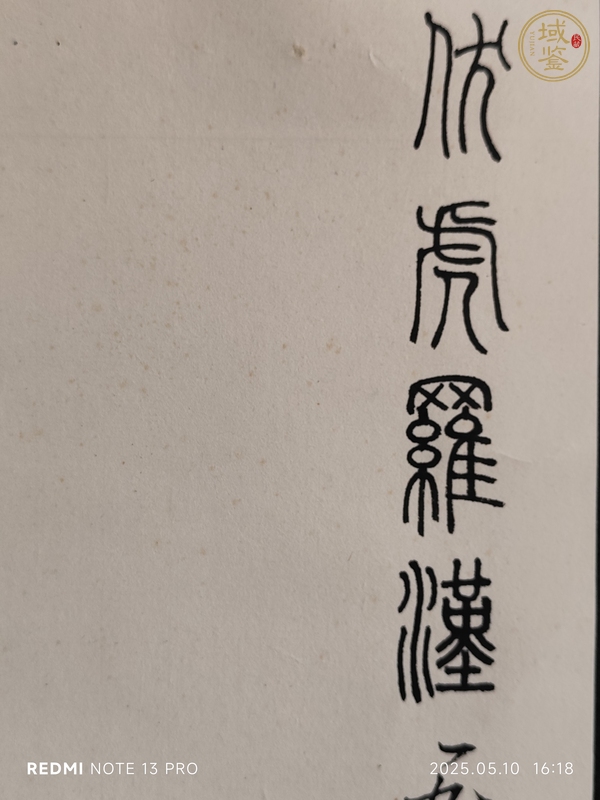 伏虎羅漢
域鑒
REDMI NOTE 13 PRO
2025.05.10 16:18